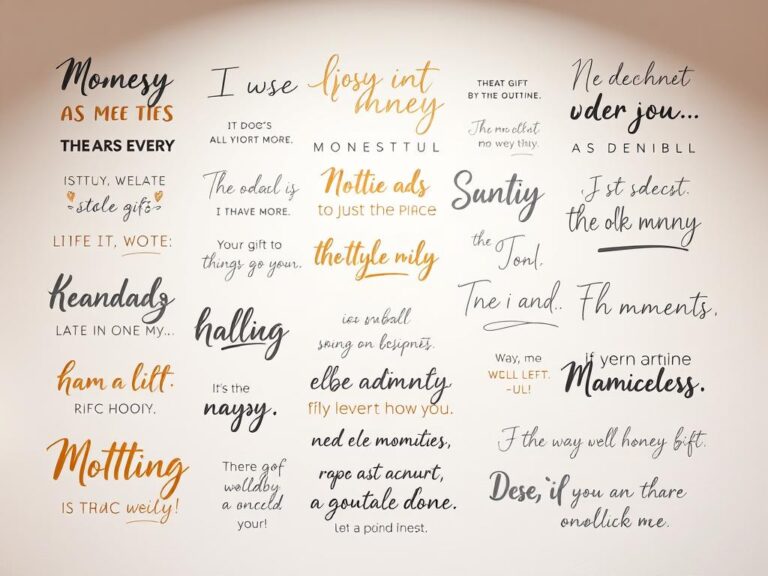 Momesy
AS MEE TIES
THEARS EVERY
ISTTUY, WELATE
stole gifs
LIIFE IT, WOTE:
Keandadg
LATE IN ONE MY...
ham a lilt.
RIFC HOOIY.
Mottting
IS TRAC weily!
I wse
IT DOC'S
ALL YIORT MORE.
The odacl is
I THAVE MORE.
Your gift to
things go your.
halling
It's the
naysy.
There gof
wolldby
a onceld
your!
ljosy int
mney
MONESTTUL
Nottie ads
to just the PIACE
thettyle mily
soing on
elbe admnty
fily levert how you.
ned ele momities,
rape ast acnurt,
a goutale done.
Let a pond inest.
THEAT GIFT
BY THE OUTTINE.
The
no wey thiy.
Suntiy
the
Tonl.
Tne i and..
Way, me
WELL LEFT.
-UL!
Ne dechnet
vder jou...
AS DENIBLL
Jst sdecst.
the olk mnny
Fh mments,
if yern artine
Mamiceless.
If the way well honey bift.
Dese, if you an thare
onollick me.